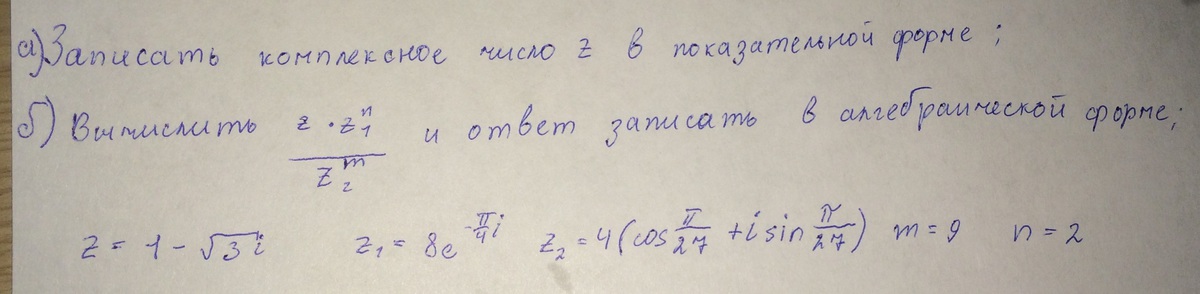 а) Записать комплексное число z в показательной форме;
б) Вычислить z · z₁ⁿ / z₂ᵐ и ответ записать в алгебраической форме;
z = 1 - √3i z₁ = 8e^(-π/4 i) z₂ = 4(cos π/27 + i sin π/27) m = 9 n = 2